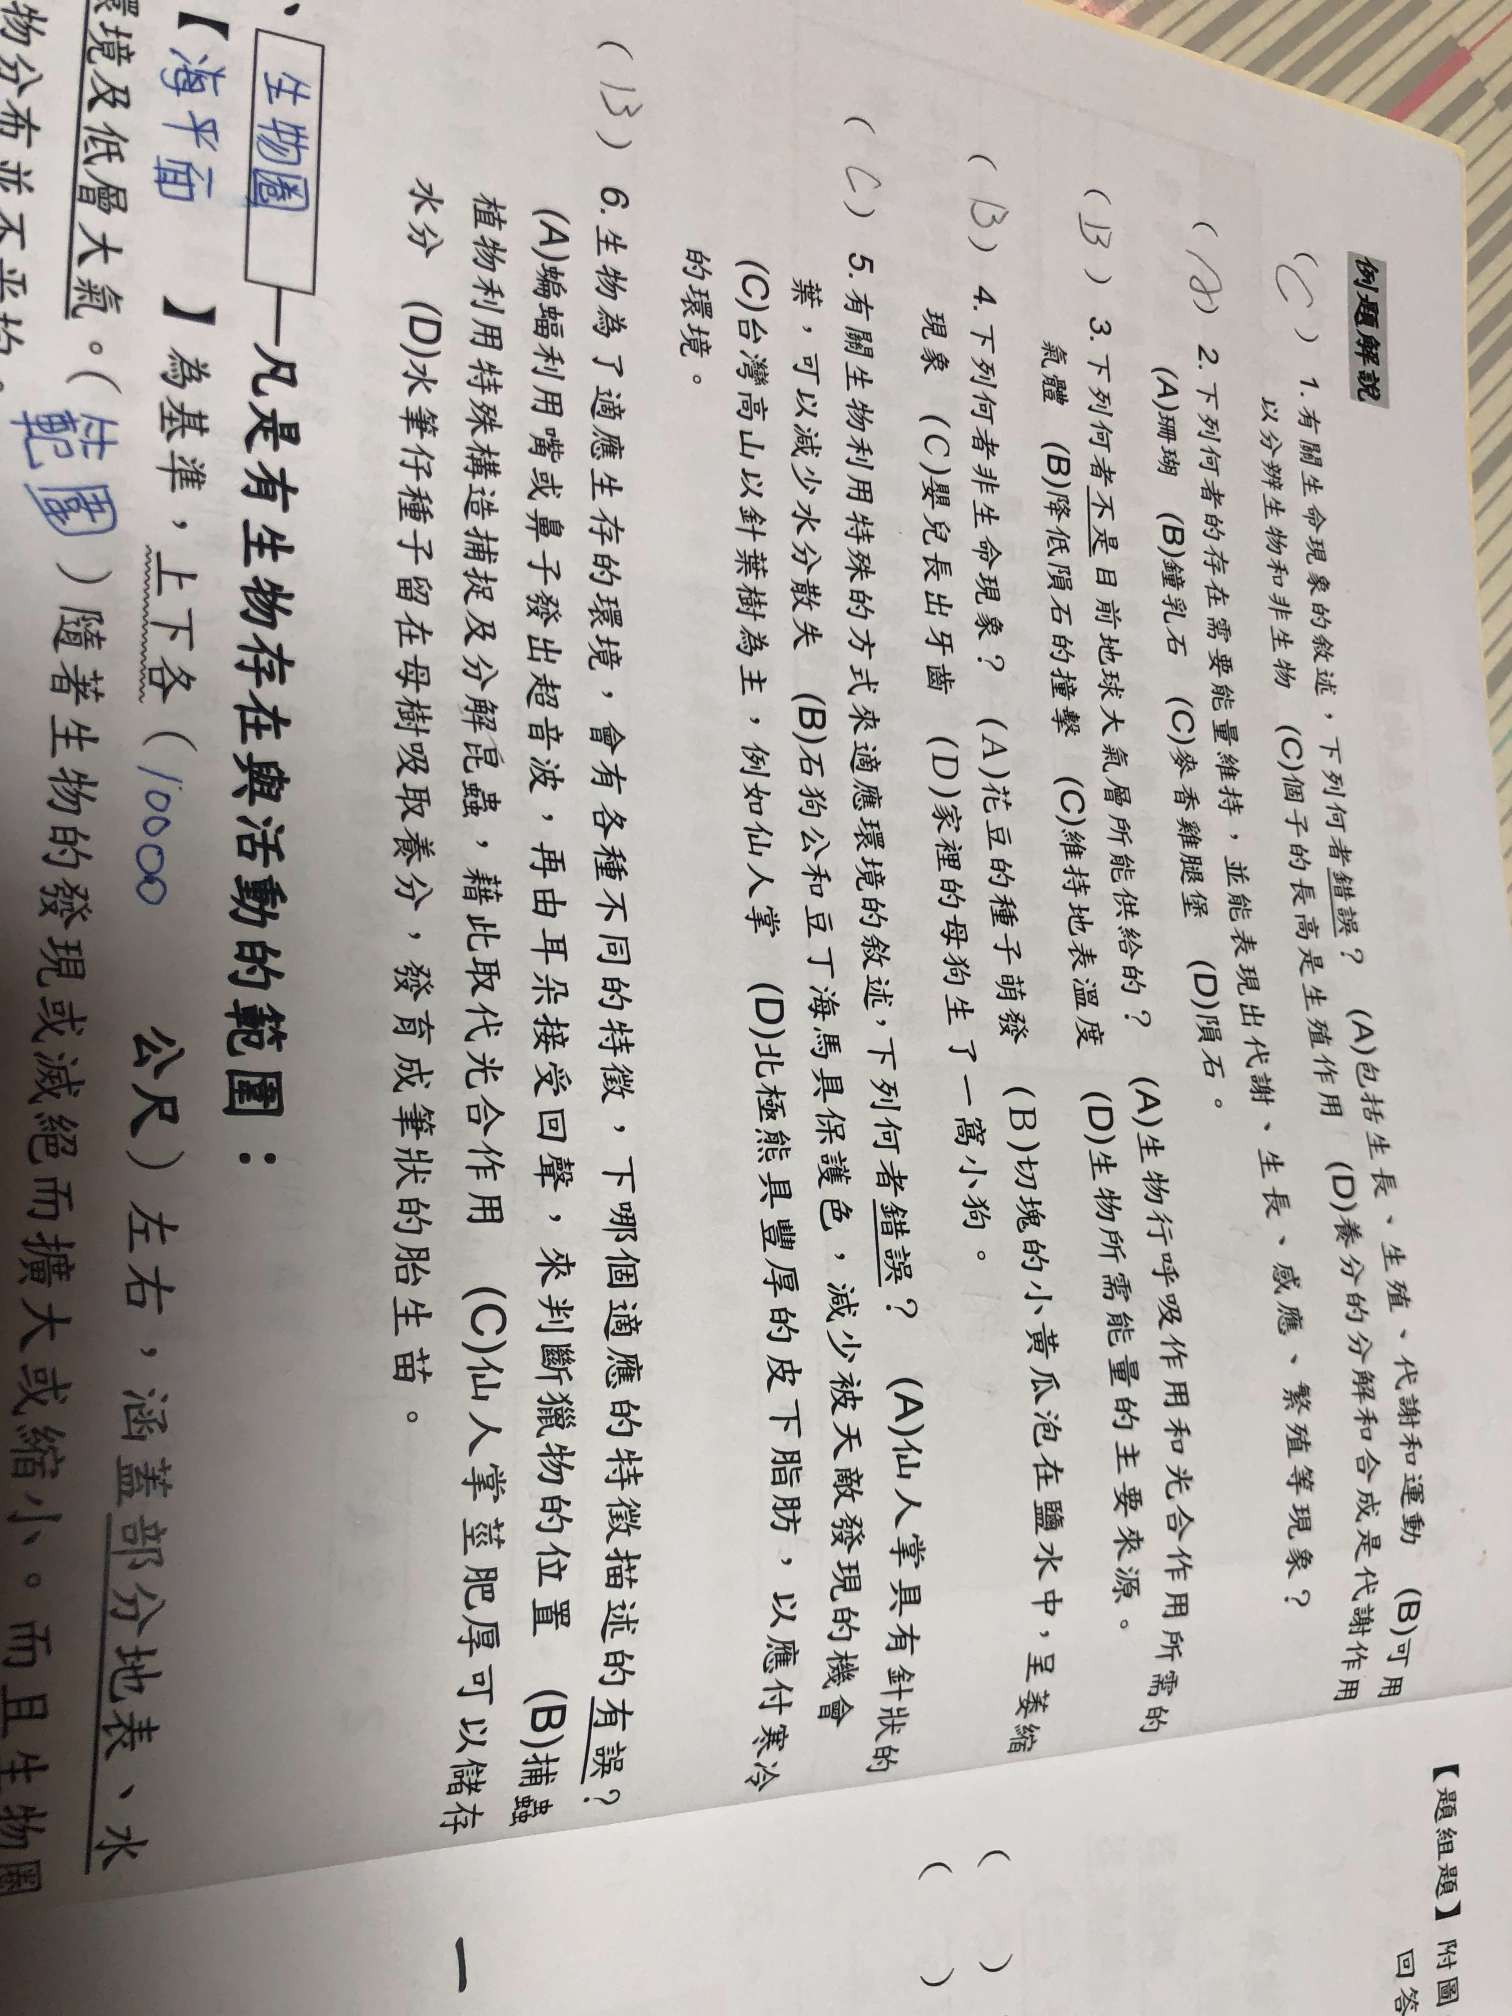 例題解說
(C) 1.有關生命現象的敘述，下列何者錯誤？ (A)包括生長、生殖、代謝和運動 (B)可用
以分辨生物和非生物 (C)個子的長高是生殖作用 (D)養分的分解和合成是代謝作用
(A) 2.下列何者的存在需要能量維持，並能表現出代謝、生長、感應、繁殖等現象？
(A)珊瑚 (B)鐘乳石 (C)麥香雞腿堡 (D)隕石。
(B) 3.下列何者不是目前地球大氣層所能供給的？ (A)生物行呼吸作用和光合作用所需的
氣體 (B)降低隕石的撞擊 (C)維持地表溫度 (D)生物所需能量的主要來源。
(B) 4.下列何者非生命現象？ (A)花豆的種子萌發 (B)切塊的小黃瓜泡在鹽水中，呈萎縮
現象 (C)嬰兒長出牙齒 (D)家裡的母狗生了一窩小狗。
(C) 5.有關生物利用特殊的方式來適應環境的敘述，下列何者錯誤？ (A)仙人掌具有針狀的
葉，可以減少水分散失 (B)石狗公和豆丁海馬具保護色，減少被天敵發現的機會
(C)台灣高山以針葉樹為主，例如仙人掌 (D)北極熊具豐厚的皮下脂肪，以應付寒冷
的環境。
(B) 6.生物為了適應生存的環境，會有各種不同的特徵，下哪個適應的特徵描述的有誤？
(A)蝙蝠利用嘴或鼻子發出超音波，再由耳朵接受回聲，來判斷獵物的位置 (B)捕蟲
植物利用特殊構造捕捉及分解昆蟲，藉此取代光合作用 (C)仙人掌莖肥厚可以儲存
水分 (D)水筆仔種子留在母樹吸取養分，發育成筆狀的胎生苗。
、生物圈—凡是有生物存在與活動的範圍：
【海平面】為基準，上下各（10000 公尺）左右，涵蓋部分地表、水
環境及低層大氣。（範圍）隨著生物的發現或滅絕而擴大或縮小。而且生物圈
物分布並不平均。
【題組題】附圖
回答
( )
( )
一